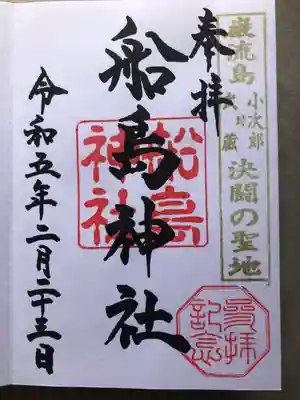 巌流島
小次郎
武蔵
決闘の聖地
奉拝
船島神社
船島神社
参拝記念
令和五年二月二十三日